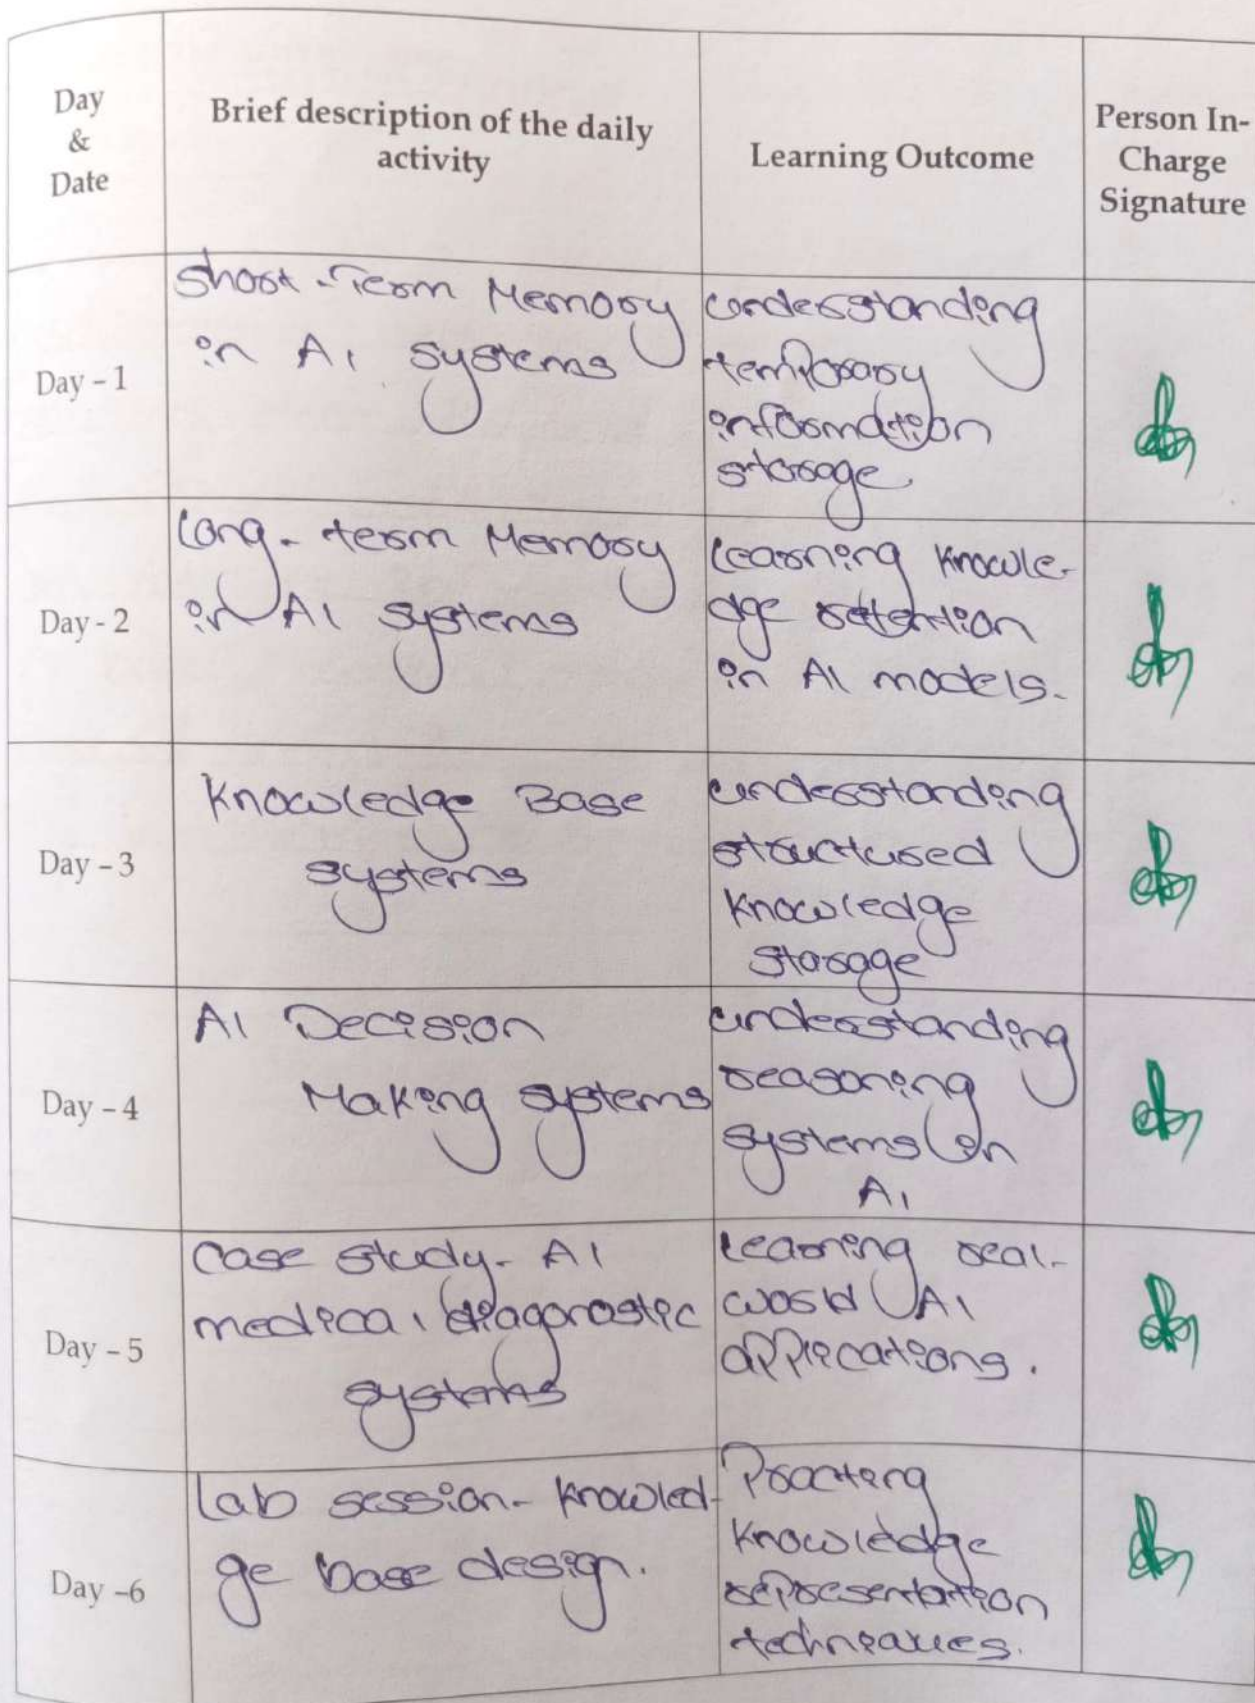 Day
&
Date
Brief description of the daily
activity
Learning Outcome
Person In-
Charge
Signature
Day - 1
Short-Term Memory
in AI systems
understanding
temporary
information
storage.
Day - 2
Long-term Memory
in AI systems
Learning knowle-
dge retention
in AI models.
Day - 3
Knowledge Base
systems
understanding
structured
knowledge
storage
Day - 4
AI Decision
Making systems
understanding
reasoning
systems in
AI
Day - 5
Case study- AI
medical diagonastic
systems
Learning real-
world AI
applications.
Day -6
Lab session- knowled-
ge base design.
Practing
knowledge
representation
techniques.